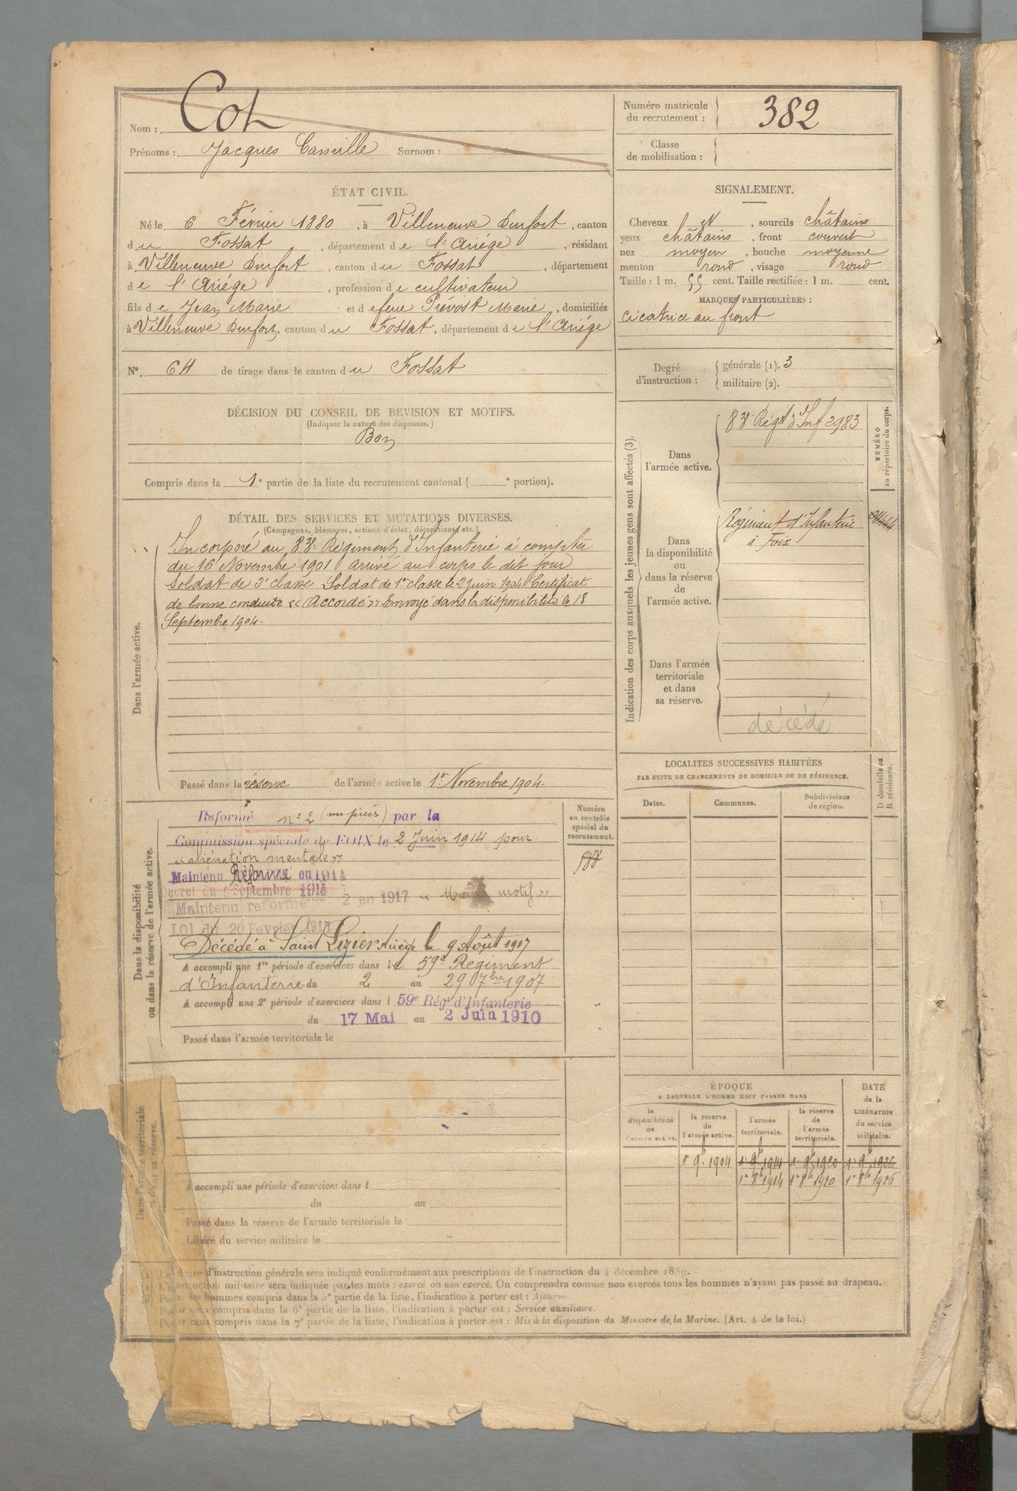 Nom : Cot
Prénoms : Jacques Camille Surnom :
ÉTAT CIVIL.
Né le 6 Février 1880, à Villeneuve Durfort, canton
du Fossat, département de l'Ariége, résidant
à Villeneuve Durfort, canton du Fossat, département
de l'Ariége, profession de cultivateur
fils de Jean Marie et de feue Prévost Marie, domiciliés
à Villeneuve Durfort, canton du Fossat, département de l'Ariége
N°. 64 de tirage dans le canton du Fossat
DÉCISION DU CONSEIL DE REVISION ET MOTIFS.
(Indiquer la nature des dispenses.)
Bon
Compris dans la 1e partie de la liste du recrutement cantonal ( e portion).
DÉTAIL DES SERVICES ET MUTATIONS DIVERSES.
(Campagnes, blessures, actions d'éclat, décorations, etc.)
Dans l'armée active.
Incorporé au 83e Régiment d'Infanterie à compter
du 16 Novembre 1901 arrivé au corps le dit jour
Soldat de 2e classe Soldat de 1re classe le 2 juin 1904 Certificat
de bonne conduite « Accordé » Envoyé dans la disponibilité le 18
Septembre 1904.
Passé dans la réserve de l'armée active le 1er Novembre 1904.
Dans la disponibilité
ou dans la réserve de l'armée active.
Numéro
au contrôle
spécial du
recrutement.
Réformé n° 2 par la
Commission spéciale de FOIX le 2 Juin 1914 pour
« aliénation mentale »
Maintenu Réformé en 1914
Décret du Septembre 1914
Maintenu réformé 2 en 1917 « motif »
Loi du 20 Fevrier 1917
Décédé à Saint Lizier Ariège le 9 Août 1917
A accompli une 1re période d'exercices dans le 59e Régiment
d'Infanterie du 2 au 29 7bre 1907
A accompli une 2e période d'exercices dans l 59e Rég' d'Infanterie
du 17 Mai au 2 Juin 1910
Passé dans l'armée territoriale le
Dans l'armée territoriale
A accompli une période d'exercices dans l
du au
Passé dans la réserve de l'armée territoriale le
Libéré du service militaire le
Numéro matricule
du recrutement : 382
Classe
de mobilisation :
SIGNALEMENT.
Cheveux et, sourcils châtains
yeux châtains, front couvert
nez moyen, bouche moyenne
menton rond, visage rond
Taille : 1 m. 55 cent. Taille rectifiée : 1 m. cent.
MARQUES PARTICULIÈRES :
cicatrice au front
Degré
d'instruction :
générale (1). 3
militaire (2).
Indication des corps auxquels les jeunes gens sont affectés (3).
NUMÉRO
au répertoire du corps.
Dans
l'armée active.
83e Régt d'Inf 2983
Dans
la disponibilité
ou
dans la réserve
de
l'armée active.
Régiment d'Infanterie
à Foix
Dans l'armée
territoriale
et dans
sa réserve.
décédé
LOCALITÉS SUCCESSIVES HABITÉES
PAR SUITE DE CHANGEMENTS DE DOMICILE OU DE RÉSIDENCE.
Dates. Communes. Subdivisions
de région.
D domicile ou
R résidence.
ÉPOQUE
A LAQUELLE L'HOMME DOIT PASSER DANS
DATE
de la
LIBÉRATION
du service
militaire.
la
disponibilité
de
l'armée active.
la réserve
de
l'armée active.
l'armée
territoriale.
la réserve
de
l'armée
territoriale.
1er 9bre 1904 1er 9bre 1914 1er 9bre 1920 1er 9bre 1926
1er 8bre 1914 1er 8bre 1920 1er 8bre 1926
Le degré d'instruction générale sera indiqué conformément aux prescriptions de l'instruction du 4 décembre 1889.
L'instruction militaire sera indiquée par les mots : exercé ou non exercé. On comprendra comme non exercés tous les hommes n'ayant pas passé au drapeau.
Pour les hommes compris dans la 5e partie de la liste, l'indication à porter est : Ajourné.
Pour ceux compris dans la 6e partie de la liste, l'indication à porter est : Service auxiliaire.
Pour ceux compris dans la 7e partie de la liste, l'indication à porter est : Mis à la disposition du Ministre de la Marine. (Art. 4 de la loi.)